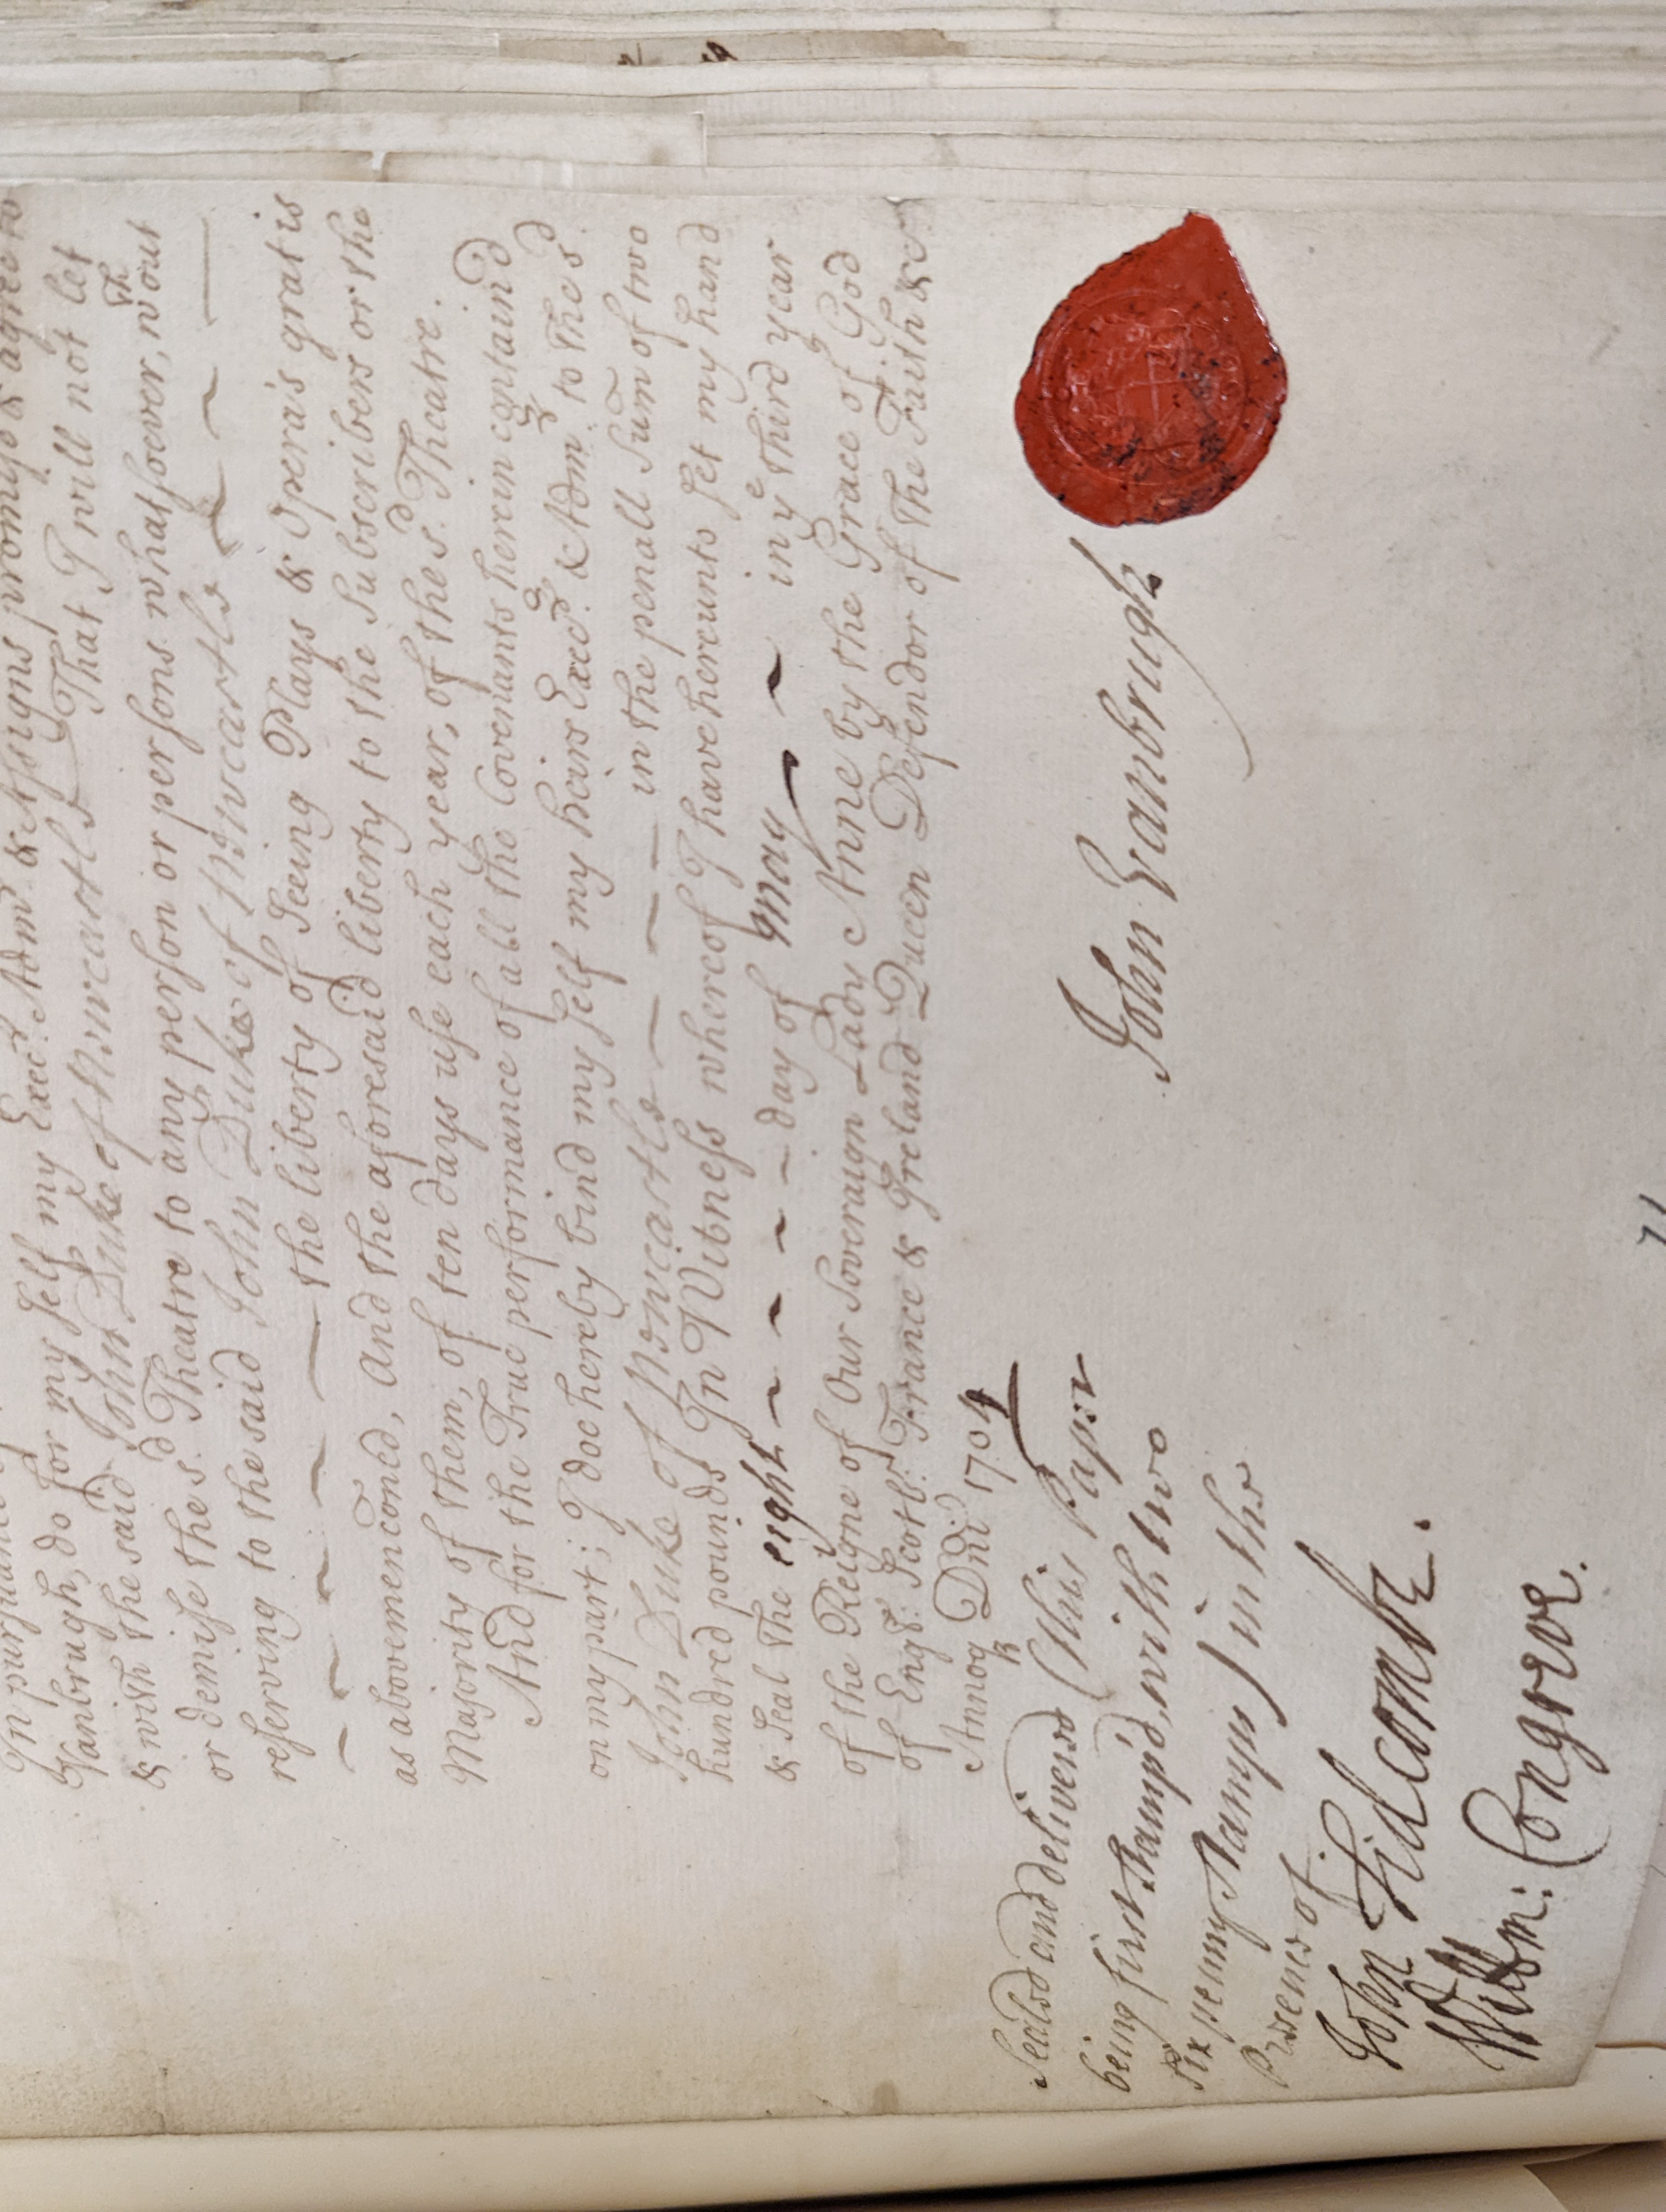 In pursuance
Vanbrugh, do for my self my Exec.rs Adm.rs & Assigns promise & agree to
& with the said John Duke of Newcastle That I will not let
or demise the s.d Theatre to any person or persons whatsoever, w.thout
reserving to the said John Duke of Newcastle
the liberty of Seeing Plays & Opera's gratis
as abovemenconed, And the aforesaid liberty to the Subscribers or the
Majority of them, of ten days use each year, of the s.d Theatre.
And for the True performance of all the Covenants herein contain'd
on my part; I doe hereby bind my self my heirs Exec.rs & Adm.rs to the s.d
John Duke of Newcastle in the penall Sum of two
hundred pounds In Witness whereof I have hereunto set my hand
& Seal The eight day of May in y.e third year
of the Reigne of Our Soveraign Lady Anne by the Grace of God
of Engl.d Scotl.d France & Ireland Queen Defendor of The Faith &c.
Annoq Dni 1704
Sealed and delivered (this Paper
being first stamp'd, with two
six penny stamps) in the
Presence of
John Vanbrugh
John Tidcomb.
Will.m: Congreve.